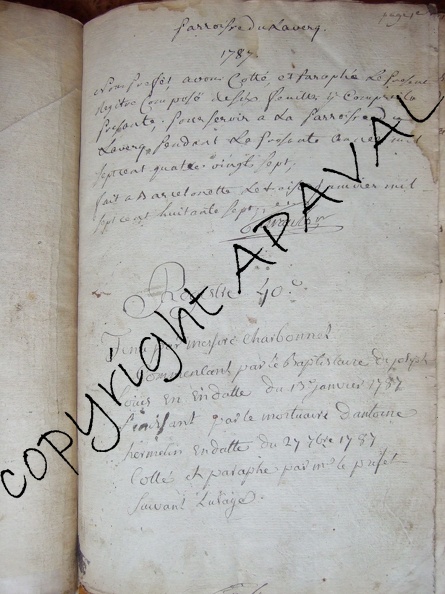 page 1e
Parroisse du Laverq
1787
Nous Prefet avons Cotté et Paraphé Le present
Registre Composé de six feuilles y Compris la
presente. Pour servir a La Parroisse du
Laverq, pendant La presente année mil
sept cent quatre vingt sept,
fait a Barcelonette Le trois Janvier mil
sept cent huitante sept
Registre 40e
Tenu par messire Charbonnel
Commencant par le Baptistaire de joseph
en Endatte du 13 janvier 1787
finissant par le mortuaire d'antoine
hermelin Endatte du 27 7bre 1787
Cotté et paraphe par mr le prefet
suivant l'usage.
copyright APAVAL